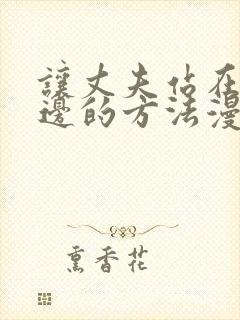 讓丈夫佔在
邊的方法漫
熏香花